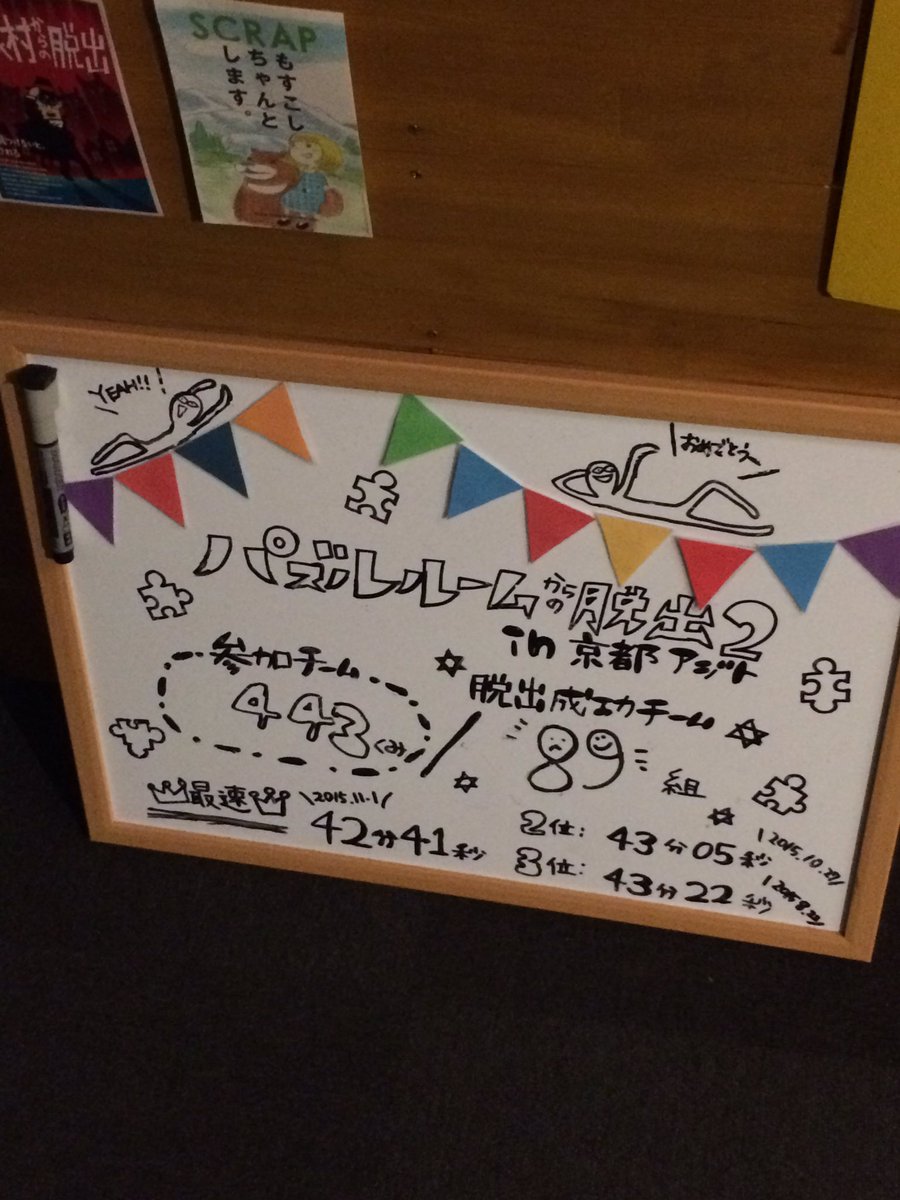 村からの脱出
SCRAP
もすこし
ちゃんと
します。
YEAH!!
おめでとう〜
パズルルームからの脱出2
in 京都アジト
参加チーム
443くみ
脱出成功チーム
89組
最速
2015.11.1
42分41秒
2位: 43分05秒
2015.10.
3位: 43分22秒